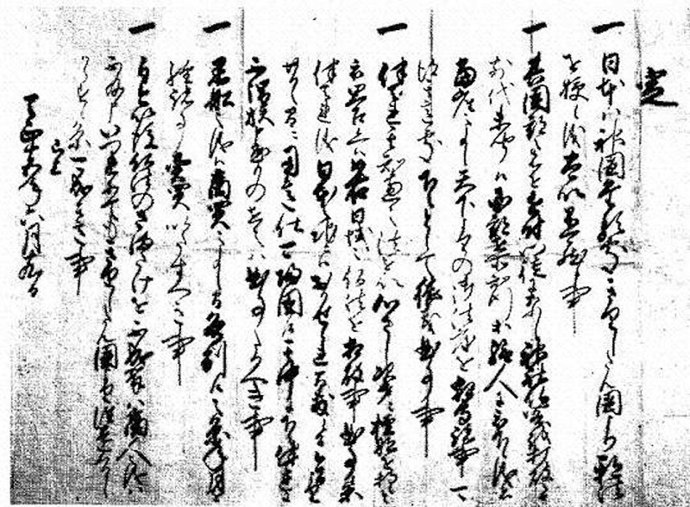 定
一 日本ハ神国たる処きりしたん国より邪法
を授候儀太以不可然候事
一 其国郡之者を近付門徒になし神社仏閣を打破之由
前代未聞候国郡在所知行等給人に被下候儀者
当座之事候天下よりの御法度を相守諸事可得
其意処下々として猥義曲事事
一 伴天連其知恵之法を以心さし次第ニ檀那を持候と
被思召候ヘハ如右日域之仏法を相破事曲事候条
伴天連儀日本之地ニハおかせられ間敷候間今日より
廿日之間ニ用意仕可帰国候其中に下々伴天連に
不謂族申懸もの在之ハ曲事たるへき事
一 黒船之儀ハ商買之事候間各別候之条年月を
経諸事売買いたすへき事
一 自今以後仏法のさまたけを不成輩ハ商人之儀ハ
不及申いつれにてもきりしたん国より往還くるし
からす候条可成其意事
已上
天正十五年六月十九日